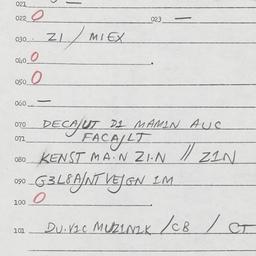 021
022 O 023 —
030 ZI / MIEX
040 O
050 O
060 —
070 DECA/UT D1 MAM1N AUC
071 FACA/LT
080 KENST MA.N Z1.N // Z1N
090 G3L8A/NT VE/GN 1M
100 O
101 DU.V1C MUZ1N1K / C8 / CT